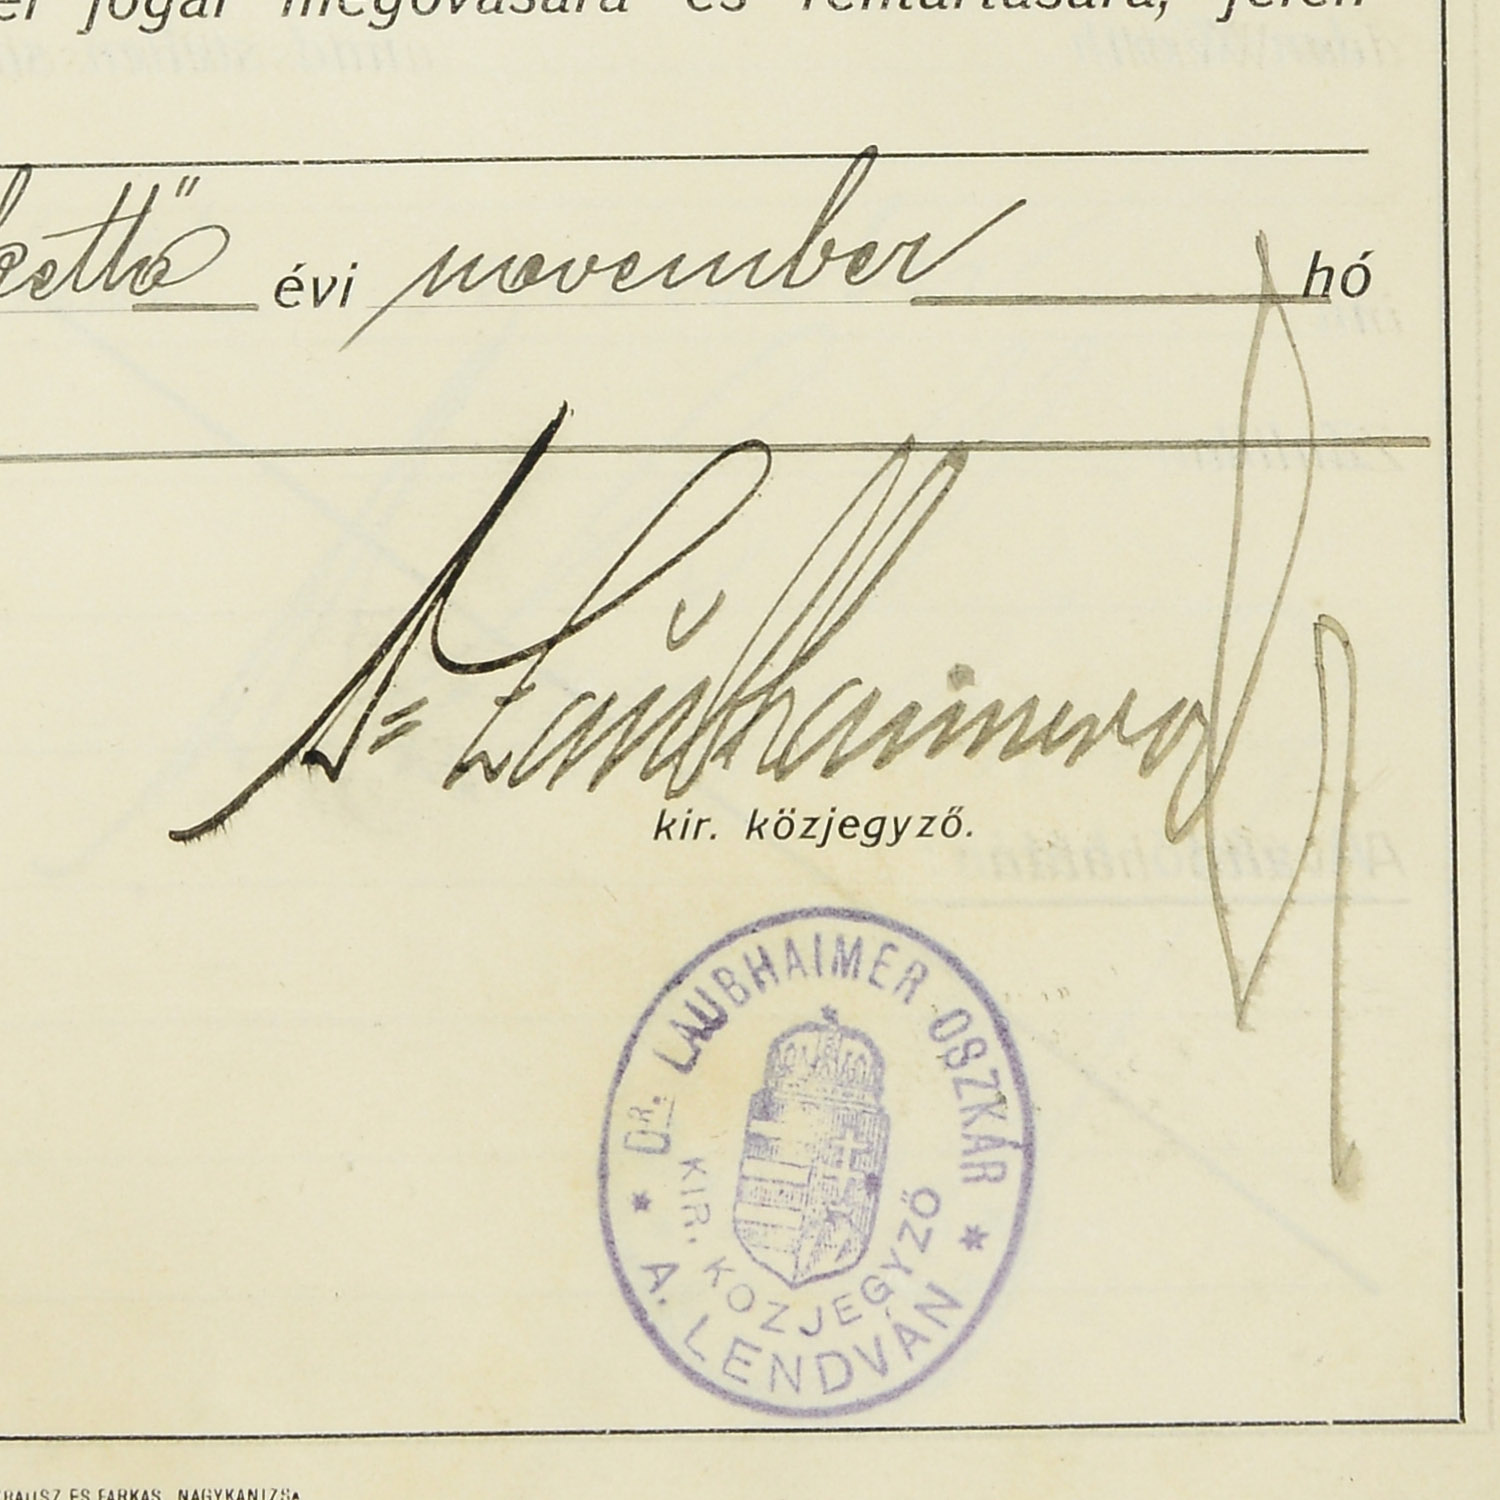 jogai megóvására és fentartására, jelen
kettő évi november hó
Dr Laubhaimer
kir. közjegyző.
DR. LAUBHAIMER OSZKÁR
KIR. KÖZJEGYZŐ
* A. LENDVÁN *
KRAUSZ ÉS FARKAS, NAGYKANIZSA